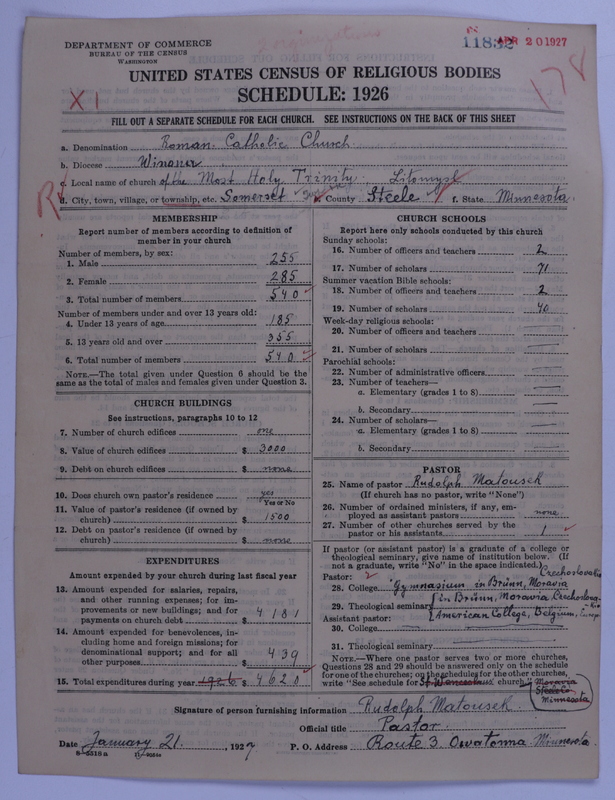 DEPARTMENT OF COMMERCE
BUREAU OF THE CENSUS
WASHINGTON
11832 APR 20 1927
UNITED STATES CENSUS OF RELIGIOUS BODIES
SCHEDULE: 1926
X 1
178
FILL OUT A SEPARATE SCHEDULE FOR EACH CHURCH. SEE INSTRUCTIONS ON THE BACK OF THIS SHEET
a. Denomination Roman Catholic Church
b. Diocese Winona
c. Local name of church of the Most Holy Trinity Litomysl
d. City, town, village, or township, etc. Somerset e. County Steele f. State Minnesota
MEMBERSHIP
Report number of members according to definition of
member in your church
Number of members, by sex:
1. Male 255
2. Female 285
3. Total number of members 540
Number of members under and over 13 years old:
4. Under 13 years of age 185
5. 13 years old and over 355
6. Total number of members 540
NOTE.—The total given under Question 6 should be
same as the total of males and females given under Question 3.
CHURCH BUILDINGS
See instructions, paragraphs 10 to 12
7. Number of church edifices one
8. Value of church edifices $ 3000
9. Debt on church edifices $ none
10. Does church own pastor's residence yes
Yes or No
11. Value of pastor's residence (if owned by
church) $ 1500
12. Debt on pastor's residence (if owned by
church) $ none
EXPENDITURES
Amount expended by your church during last fiscal year
13. Amount expended for salaries, repairs,
and other running expenses; for im-
provements or new buildings; and for
payments on church debt $ 4181
14. Amount expended for benevolences, in-
cluding home and foreign missions; for
denominational support; and for all
other purposes $ 439
15. Total expenditures during year 1926 $ 4620
CHURCH SCHOOLS
Report here only schools conducted by this church
Sunday schools:
16. Number of officers and teachers 2
17. Number of scholars 71
Summer vacation Bible schools:
18. Number of officers and teachers 2
19. Number of scholars 40
Week-day religious schools:
20. Number of officers and teachers
21. Number of scholars
Parochial schools:
22. Number of administrative officers
23. Number of teachers—
a. Elementary (grades 1 to 8)
b. Secondary
24. Number of scholars—
a. Elementary (grades 1 to 8)
b. Secondary
PASTOR
25. Name of pastor Rudolph Matousek
(If church has no pastor, write "None")
26. Number of ordained ministers, if any, em-
ployed as assistant pastors none
27. Number of other churches served by the
pastor or his assistants 1
If pastor (or assistant pastor) is a graduate of a college or
theological seminary, give name of institution below. (If
not a graduate, write "No" in the space indicated)
Pastor: 2 Czechoslovakia
28. College Gymnasium in Brünn, Moravia
29. Theological seminary in Brünn, Moravia Czechoslova-
kia
Assistant pastor: American College, Belgium, Europe
30. College
31. Theological seminary
NOTE.—Where one pastor serves two or more churches,
Questions 28 and 29 should be answered only on the schedule
for one of the churches; on the schedules for the other churches,
write "See schedule for church." Moravia
Steele
Minnesota
Signature of person furnishing information Rudolph Matousek
Official title Pastor
Date January 21, 1927 P. O. Address Route 3. Owatonna Minnesota.